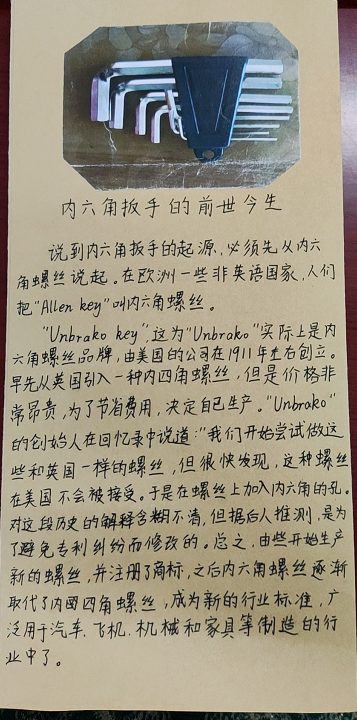 内六角扳手的前世今生
说到内六角扳手的起源，必须先从内六
角螺丝说起。在欧洲一些非英语国家，人们
把"Allen key"叫内六角螺丝。
"Unbrako key"，这为"Unbrako"实际上是内
六角螺丝品牌，由美国的公司在1911年左右创立。
早先从英国引入一种内四角螺丝，但是价格非
常昂贵，为了节省费用，决定自己生产。"Unbrako"
的创始人在回忆录中说道："我们开始尝试做这
些和英国一样的螺丝，但很快发现，这种螺丝
在美国不会被接受。于是在螺丝上加入内六角的孔。
对这段历史的解释含糊不清，但据后人推测，是为
了避免专利纠纷而修改的。总之，由些开始生产
新的螺丝，并注册了商标，之后内六角螺丝逐渐
取代了内四角螺丝，成为新的行业标准，广
泛用于汽车、飞机、机械和家具等制造的行
业中了。